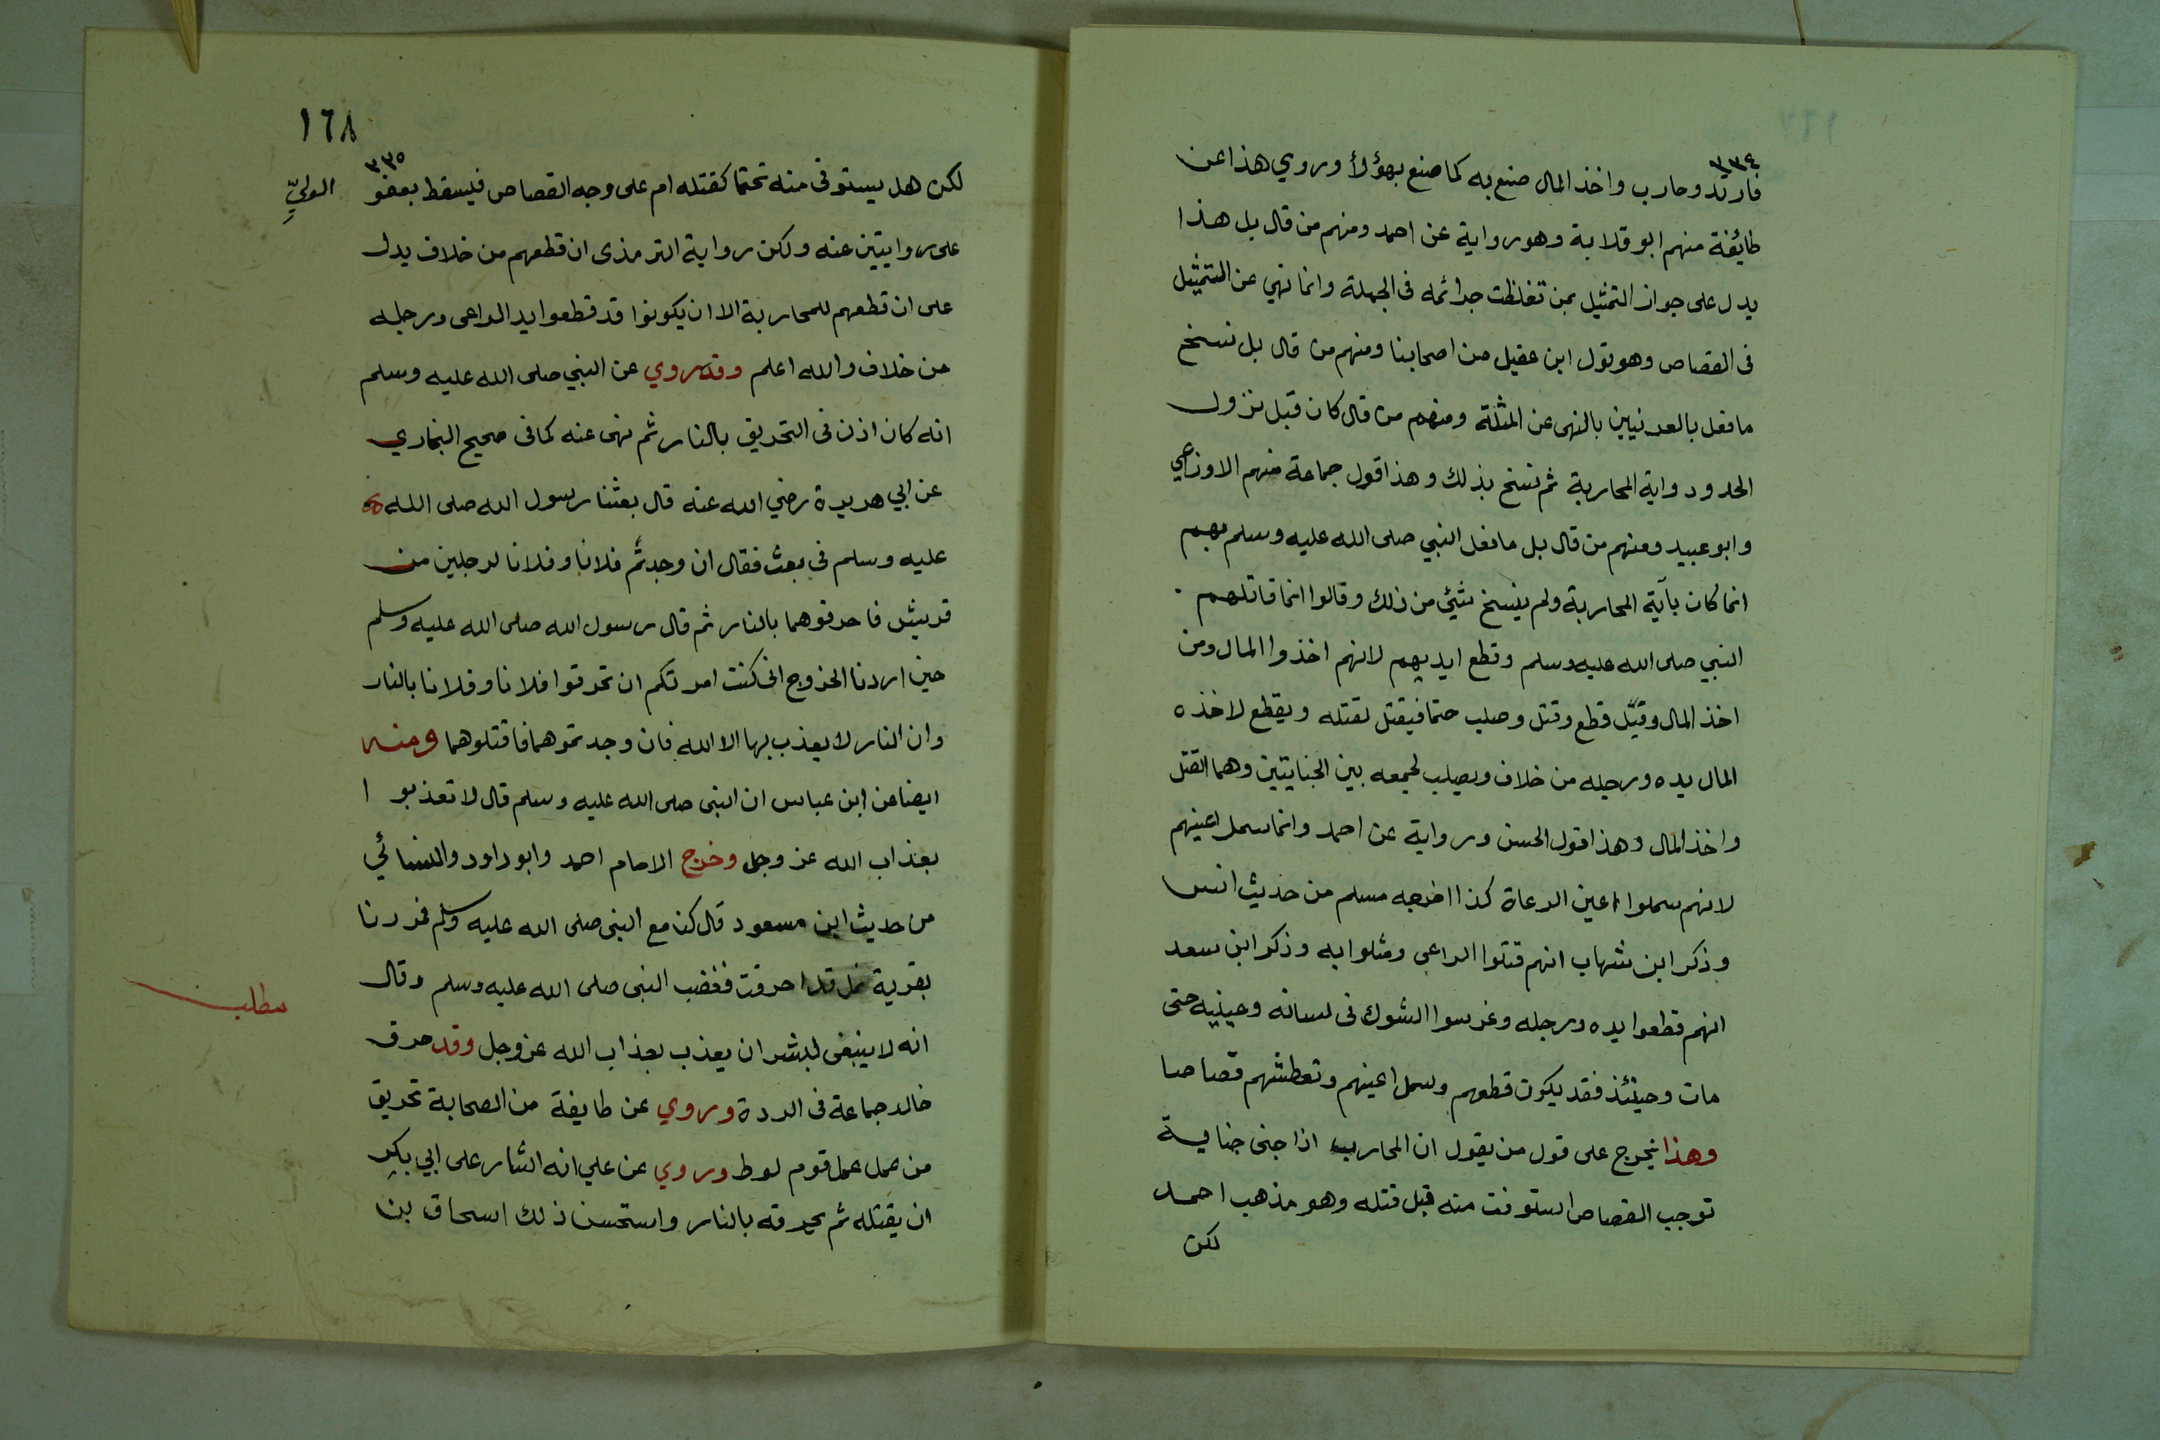 ٣٣٤
فارتد وحارب واخذ المال صنع به كما صنع بهؤلأ وروي هذا عن
طايفة منهم ابو قلابة وهو رواية عن احمد ومنهم من قال بل هذا
يدل على جواز التمثيل بمن تغلظت جرائمه فى الجملة وانما نهي عن التمثيل
فى القصاص وهو قول ابن عقيل من اصحابنا ومنهم من قال بل نسخ
ما فعل بالعرنيين بالنهى عن المثلة ومنهم من قال كان قبل نزول
الحدود واية المحاربة ثم نسخ بذلك وهذا قول جماعة منهم الاوزاعي
وابو عبيد ومنهم من قال بل ما فعل النبي صلى الله عليه وسلم بهم
انما كان بآية المحاربة ولم ينسخ شئي من ذلك وقالوا انما قاتلهم
النبي صلى الله عليه وسلم وقطع ايديهم لانهم اخذوا المال ومن
اخذ المال وقتل قطع وقتل وصلب حتما فيقتل لقتله ويقطع لاخذه
المال يده ورجله من خلاف ويصلب لجمعه بين الجنايتين وهما القتل
واخذ المال وهذا قول الحسن ورواية عن احمد وانما سمل اعينهم
لانهم سملوا اعين الرعاة كذا اخرجه مسلم من حديث انس
وذكر ابن شهاب انهم قتلوا الراعي ومثلوا به وذكر ابن سعد
انهم قطعوا يده ورجله وغرسوا الشوك فى لسانه وعينيه حتى
مات وحينئذ فقد يكون قطعهم وسمل اعينهم وتعطشهم قصاصا
وهذا يخرج على قول من يقول ان المحارب اذا جنى جناية
توجب القصاص استوفت منه قبل قتله وهو مذهب احمد
لكن
١٦٨
٣٣٥
لكن هل يستوفى منه تحتما كقتله ام على وجه القصاص فيسقط بعفو الوليّ
على روايتين عنه ولكن رواية الترمذى ان قطعهم من خلاف يدل
على ان قطعهم للمحاربة الا ان يكونوا قد قطعوا يد الراعى ورجله
من خلاف والله اعلم وقد روي عن النبي صلى الله عليه وسلم
انه كان اذن فى التحريق بالنار ثم نهى عنه كما فى صحيح البخاري
عن ابي هريرة رضي الله عنه قال بعثنا رسول الله صلى الله
عليه وسلم في بعث فقال ان وجدتم فلانا وفلانا لرجلين من
قريش فاحرقوهما بالنار ثم قال رسول الله صلى الله عليه وسلم
حين اردنا الخروج انى كنت امرتكم ان تحرقوا فلانا وفلانا بالنار
وان النار لا يعذب بها الا الله فان وجدتموهما فاقتلوهما ومنه
ايضا عن ابن عباس ان النبى صلى الله عليه وسلم قال لا تعذبوا
بعذاب الله عز وجل وخرج الامام احمد وابو داود والنسائي
من حديث ابن مسعود قال كنا مع النبى صلى الله عليه وسلم فمررنا
بقرية نمل قد احرقت فغضب النبى صلى الله عليه وسلم وقال
مطلب
انه لا ينبغى لبشر ان يعذب بعذاب الله عز وجل وقد حرق
خالد جماعة فى الردة وروي عن طايفة من الصحابة تحريق
من عمل عمل قوم لوط وروي عن علي انه اشار على ابي بكر
ان يقتله ثم يحرقه بالنار واستحسن ذلك اسحاق بن